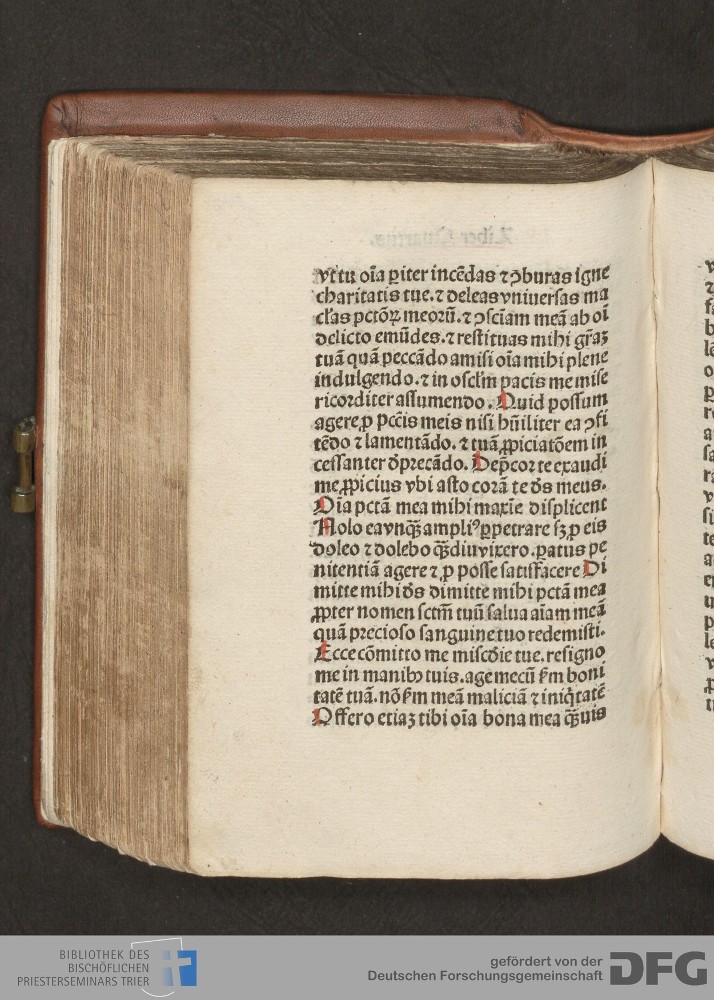 vt tu oīa ꝑiter incēdas ⁊ ꝯburas igne
charitatis tue. ⁊ deleas vniuersas ma
cl̓as pctōꝝ meoꝝū. ⁊ ꝯsciam meā ab oī
delicto emūdes. ⁊ restituas mihi gr̄aꝫ
tuā quā peccādo amisi oīa mihi plene
indulgendo. ⁊ in oscl̓m pacis me mise
ricorditer assumendo. Quid possum
agere ꝓ pcc̄is meis nisi hūiliter ea ꝯfi
tēdo ⁊ lamentādo. ⁊ tuā ꝓpiciatōem in
cessanter dp̄recādo. Dep̄cor te exaudi
me ꝓpicius vbi asto corā te ds̄ meus.
Oīa pctā mea mihi maxīe displicent
Nolo ea vnqꝫ̄ ampliꝰ ꝑpetrare sꝫ ꝓ eis
doleo ⁊ dolebo qꝫ̄diu vixero. paratus pe
nitentiā agere ⁊ ꝓ posse satisfacere Di
mitte mihi ds̄ dimitte mihi pctā mea
ꝓpter nomen sctm̄ tuū salua aīam meā
quā precioso sanguine tuo redemisti.
Ecce cōmitto me misc̄die tue. resigno
me in manibꝫ tuis. age mecū ẜm boni
tatē tuā. nō ẜm meā maliciā ⁊ iniq̇tatē
Offero etiaꝫ tibi oīa bona mea qꝫ̄uis
BIBLIOTHEK DES
BISCHÖFLICHEN
PRIESTERSEMINARS TRIER
gefördert von der
Deutschen Forschungsgemeinschaft
DFG